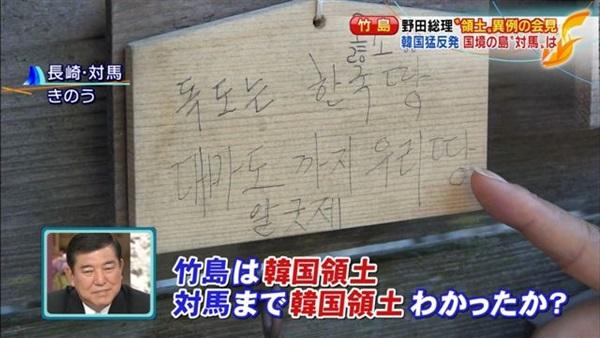 長崎・対馬
きのう
竹島 野田総理“領土”異例の会見
韓国猛反発 国境の島“対馬”は
독도는 한국땅
대마도 까지 우리땅
알긋제
竹島は韓国領土
対馬まで韓国領土 わかったか?